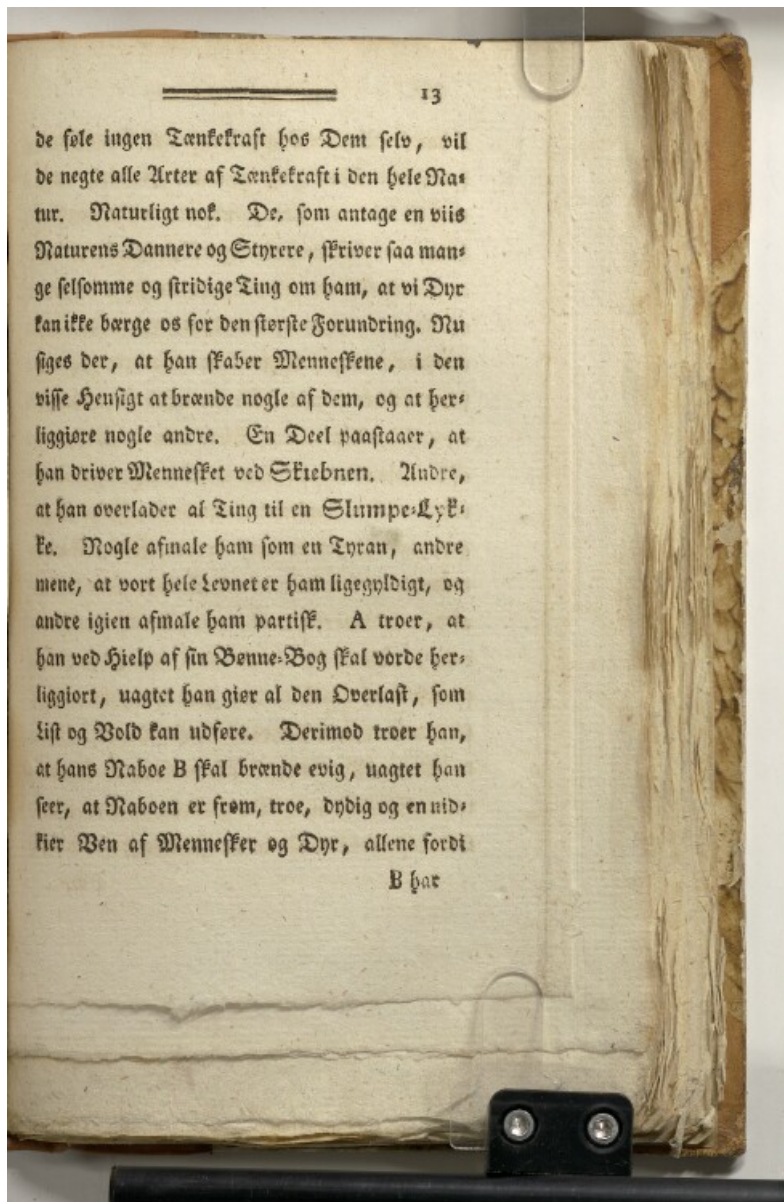 13
de føle ingen Tænkekraft hos Dem selv, vil
de negte alle Arter af Tænkekraft i den hele Na-
tur. Naturligt nok. De, som antage en viis
Naturens Dannere og Styrere, skriver saa man-
ge selsomme og stridige Ting om ham, at vi Dyr
kan ikke bærge os for den største Forundring. Nu
siges der, at han skaber Menneskene, i den
visse Hensigt at brænde nogle af dem, og at her-
liggiøre nogle andre. En Deel paastaaer, at
han driver Mennesket ved Skiebnen. Andre,
at han overlader al Ting til en Slumpe-Lyk-
ke. Nogle afmale ham som en Tyran, andre
mene, at vort hele Levnet er ham ligegyldigt, og
andre igien afmale ham partisk. A troer, at
han ved Hielp af sin Bønne-Bog skal vorde her-
liggiort, uagtet han giør al den Overlast, som
List og Vold kan udføre. Derimod troer han,
at hans Naboe B skal brænde evig, uagtet han
seer, at Naboen er from, troe, dydig og en nid-
kier Ven af Mennesker og Dyr, allene fordi
B har